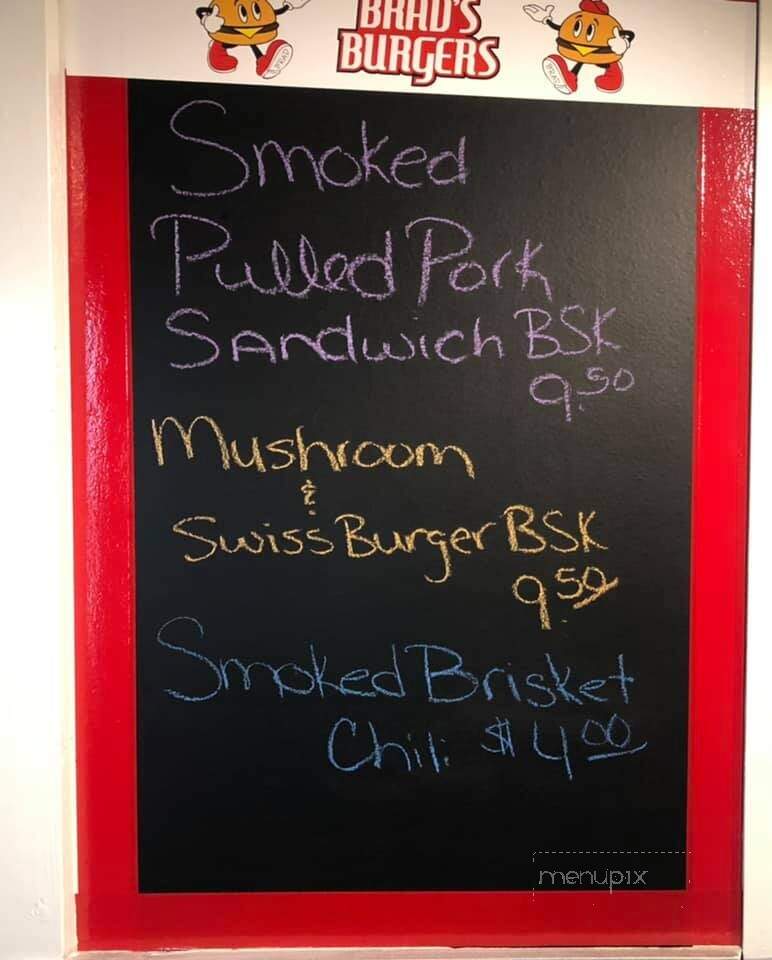 BRAD'S
BURGERS
Smoked
Pulled Pork
Sandwich BSK
9.50
Mushroom
&
Swiss Burger BSK
9.50
Smoked Brisket
Chili $4.00
menupix